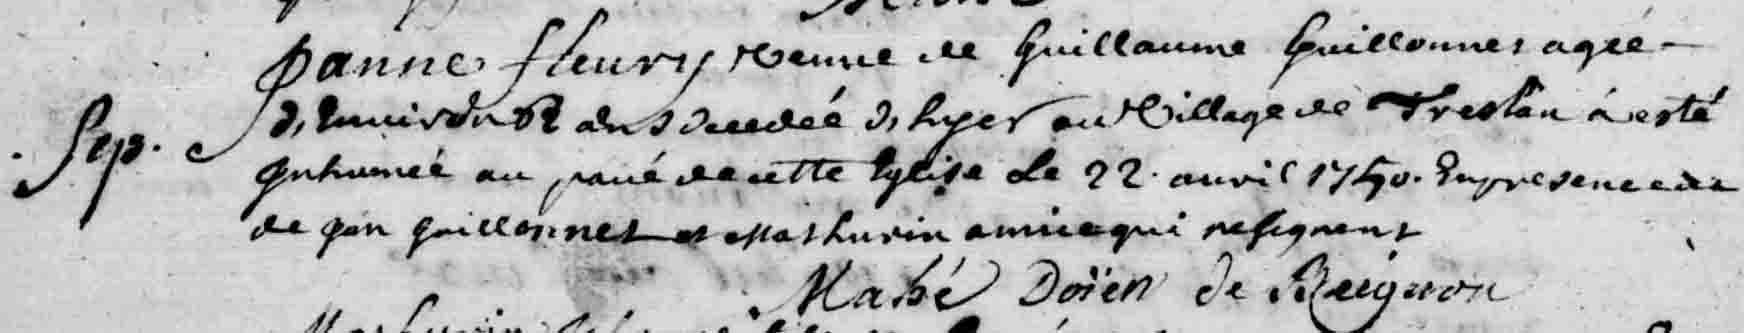 Janne fleury veuve de Guillaume Guillonnet agée
Sep. d'Environ 62 ans decedée d'hyer au Village de Treslan à esté
Inhumée au pavé de cette Eglise Le 22. avril 1740. En presence de
de Jan guillonnet et Mathurin amice qui ne signent
Mahé Doïen de Beignon